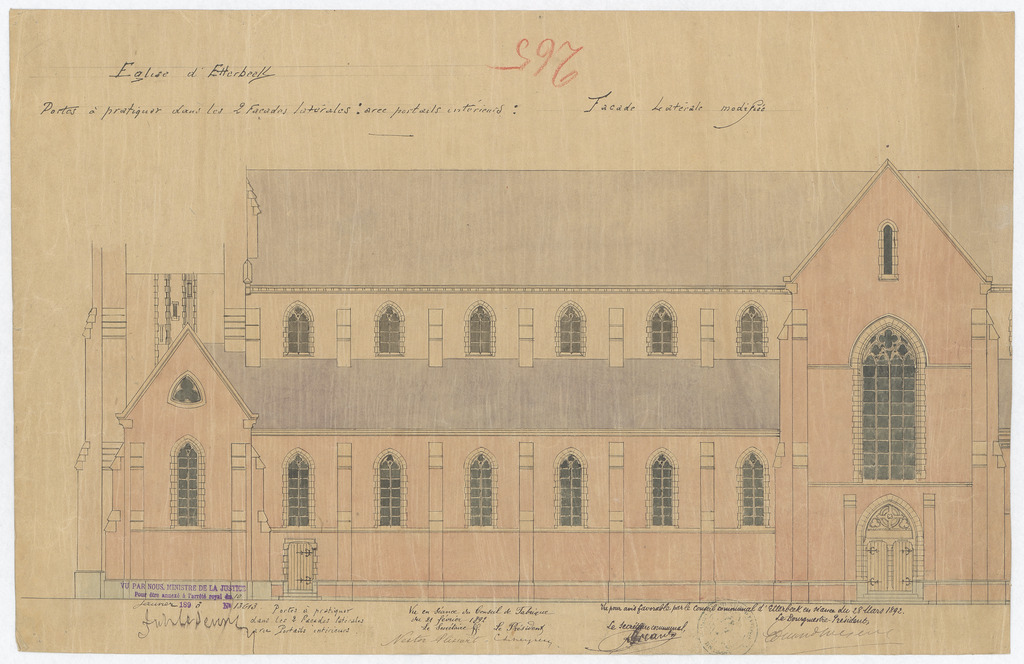 265
Eglise d'Etterbeek
Portes à pratiquer dans les 2 Façades latérales : avec portails intérieurs :
Façade Latérale modifiée
VU PAR NOUS, MINISTRE DE LA JUSTICE
Pour être annexé à l'arrêté royal du 10
Janvier 1893 Nº 13613
Portes à pratiquer
dans les 2 Façades latérales
avec Portails intérieurs
Vu en séance du Conseil de Fabrique
du février 1892
Le Secrétaire Le Président
Vu pour avis favorable par le Conseil communal d'Etterbeek en séance du 28 Mars 1892.
Le Secrétaire communal, Le Bourgmestre-Président,